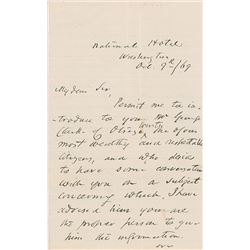 National Hotel
Washington
Oct 9th /69
My dear Sir,
Permit me to in-
troduce to you Mr George
of Chicago, one of our
most wealthy and respectable
citizens, and who desires
to have some conversation
with you on a subject
concerning which, I have
advised him you are
the proper person to give
him the information
over